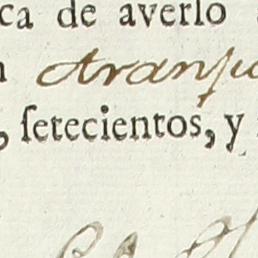 ca de averlo
Aranju
, ſetecientos, y